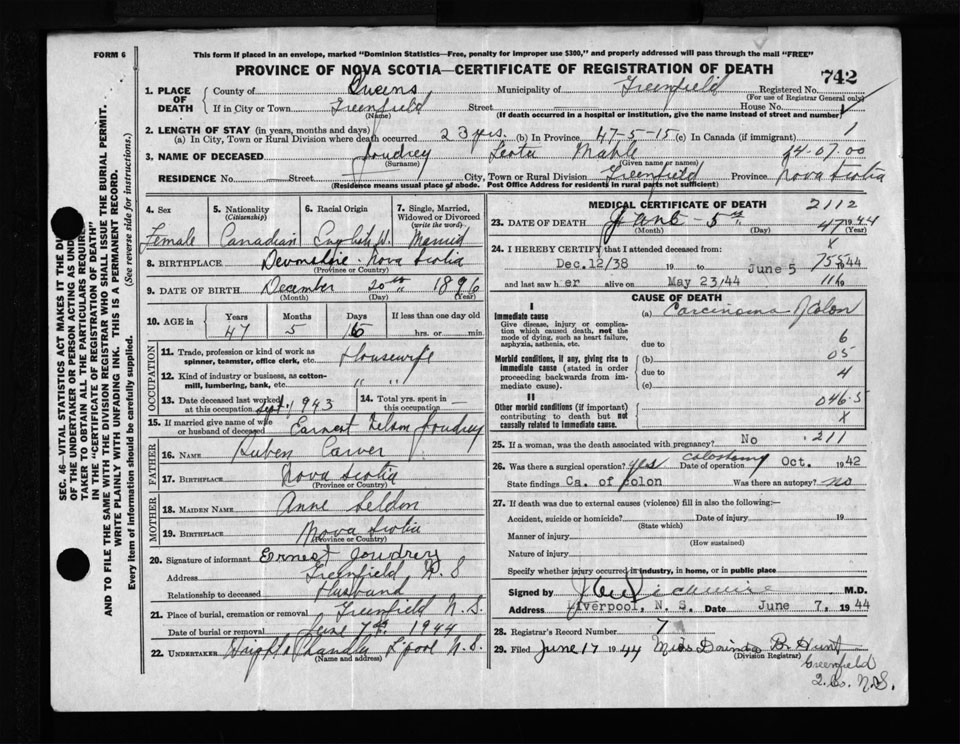 FORM 6
This form if placed in an envelope, marked "Dominion Statistics—Free, penalty for improper use $300," and properly addressed will pass through the mail "FREE"
PROVINCE OF NOVA SCOTIA—CERTIFICATE OF REGISTRATION OF DEATH
742
1. PLACE OF DEATH
County of Queens Municipality of Greenfield Registered No.
(For use of Registrar General only)
If in City or Town Greenfield Street House No.
(Name) (If death occurred in a hospital or institution, give the name instead of street and number)
2. LENGTH OF STAY (in years, months and days)
(a) In City, Town or Rural Division where death occurred 23 yrs. (b) In Province 47-5-15 (c) In Canada (if immigrant) 1
3. NAME OF DECEASED Joudrey Leota Mable 24.07.00
(Surname) (Given name or names)
RESIDENCE No. Street City, Town or Rural Division Greenfield Province Nova Scotia
(Residence means usual place of abode. Post Office Address for residents in rural parts not sufficient)
4. Sex
Female
5. Nationality
(Citizenship)
Canadian
6. Racial Origin
English
7. Single, Married, Widowed or Divorced
(write the word)
Married
8. BIRTHPLACE Devonshire Nova Scotia
(Province or Country)
9. DATE OF BIRTH December 20th 1896
(Month) (Day) (Year)
10. AGE in Years Months Days If less than one day old
47 5 15 hrs. or min.
OCCUPATION
11. Trade, profession or kind of work as spinner, teamster, office clerk, etc. Housewife
12. Kind of industry or business, as cotton-mill, lumbering, bank, etc. " "
13. Date deceased last worked at this occupation Sept. 1943
14. Total yrs. spent in this occupation —
15. If married give name of wife or husband of deceased Earnest Nelson Joudrey
FATHER
16. NAME Ruben Carver
17. BIRTHPLACE Nova Scotia
(Province or Country)
MOTHER
18. MAIDEN NAME Anne Seldon
19. BIRTHPLACE Nova Scotia
(Province or Country)
20. Signature of informant Ernest Joudrey
Address Greenfield N. S
Relationship to deceased Husband
21. Place of burial, cremation or removal Greenfield N. S.
Date of burial or removal June 7th. 1944
22. UNDERTAKER Chandler L'pool N. S.
(Name and address)
MEDICAL CERTIFICATE OF DEATH 2112
23. DATE OF DEATH June - 5th 47 1944
(Month) (Day) (Year)
X
24. I HEREBY CERTIFY that I attended deceased from:
Dec.12/38 19 to June 5 755 44
and last saw her alive on May 23/44 116 19
CAUSE OF DEATH
I
Immediate cause
Give disease, injury or complication which caused death, not the mode of dying, such as heart failure, asphyxia, asthenia, etc.
(a) Carcinoma of Colon
due to 6
Morbid conditions, if any, giving rise to immediate cause (stated in order proceeding backwards from immediate cause).
(b) 05
due to 4
(c)
II
Other morbid conditions (if important) contributing to death but not causally related to immediate cause.
046.5
X
25. If a woman, was the death associated with pregnancy? No .211
26. Was there a surgical operation? yes colostomy Date of operation Oct. 1942
State findings Ca. of colon Was there an autopsy? no
27. If death was due to external causes (violence) fill in also the following:—
Accident, suicide or homicide? Date of injury 19
(State which)
Manner of injury
(How sustained)
Nature of injury
Specify whether injury occurred in industry, in home, or in public place
Signed by M.D.
Address Liverpool, N. S. Date June 7, 1944
28. Registrar's Record Number 7
29. Filed June 17 1944 Miss Dorinda B. Hunt
(Division Registrar)
Greenfield
Q. Co. N.S.
SEC. 46—VITAL STATISTICS ACT MAKES IT THE DU
OF THE UNDERTAKER OR PERSON ACTING AS UND
TAKER TO OBTAIN ALL THE PARTICULARS REQUIRE
IN THE "CERTIFICATE OF REGISTRATION OF DEATH"
AND TO FILE THE SAME WITH THE DIVISION REGISTRAR WHO SHALL ISSUE THE BURIAL PERMIT.
WRITE PLAINLY WITH UNFADING INK. THIS IS A PERMANENT RECORD.
Every item of information should be carefully supplied. (See reverse side for instructions.)